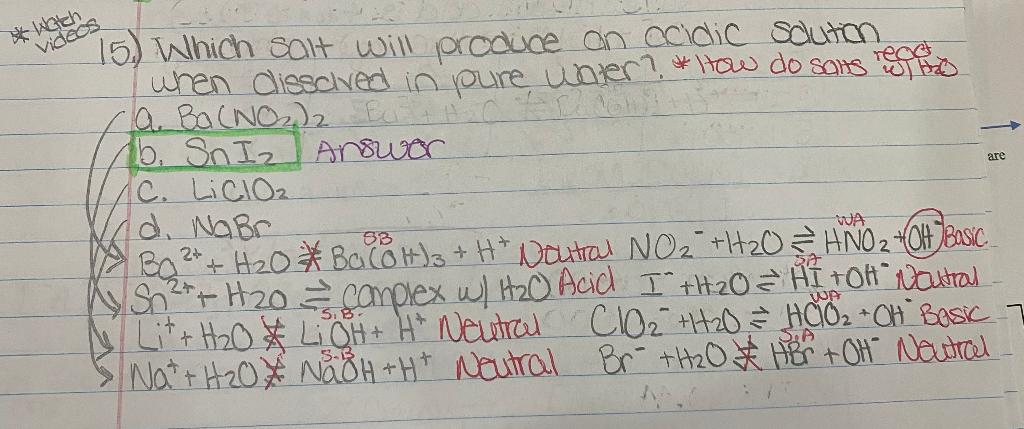 * Watch videos
15.) Which salt will produce an acidic solution
when dissolved in pure water? * How do salts react w/ H2O
a. Ba(NO2)2
b. SnI2 Answer
c. LiClO2
d. NaBr
Ba2+ + H2O ⇌ Ba(OH)3 + H+ SB Neutral NO2- + H2O ⇌ HNO2 + OH- WA Basic
Sn2+ + H2O ⇌ complex w/ H2O Acid I- + H2O ⇌ HI + OH- S.A Neutral
Li+ + H2O ⇌ LiOH + H+ S.B. Neutral ClO2- + H2O ⇌ HClO2 + OH- WA Basic
Na+ + H2O ⇌ NaOH + H+ S.B Neutral Br- + H2O ⇌ HBr + OH- S.A Neutral
are